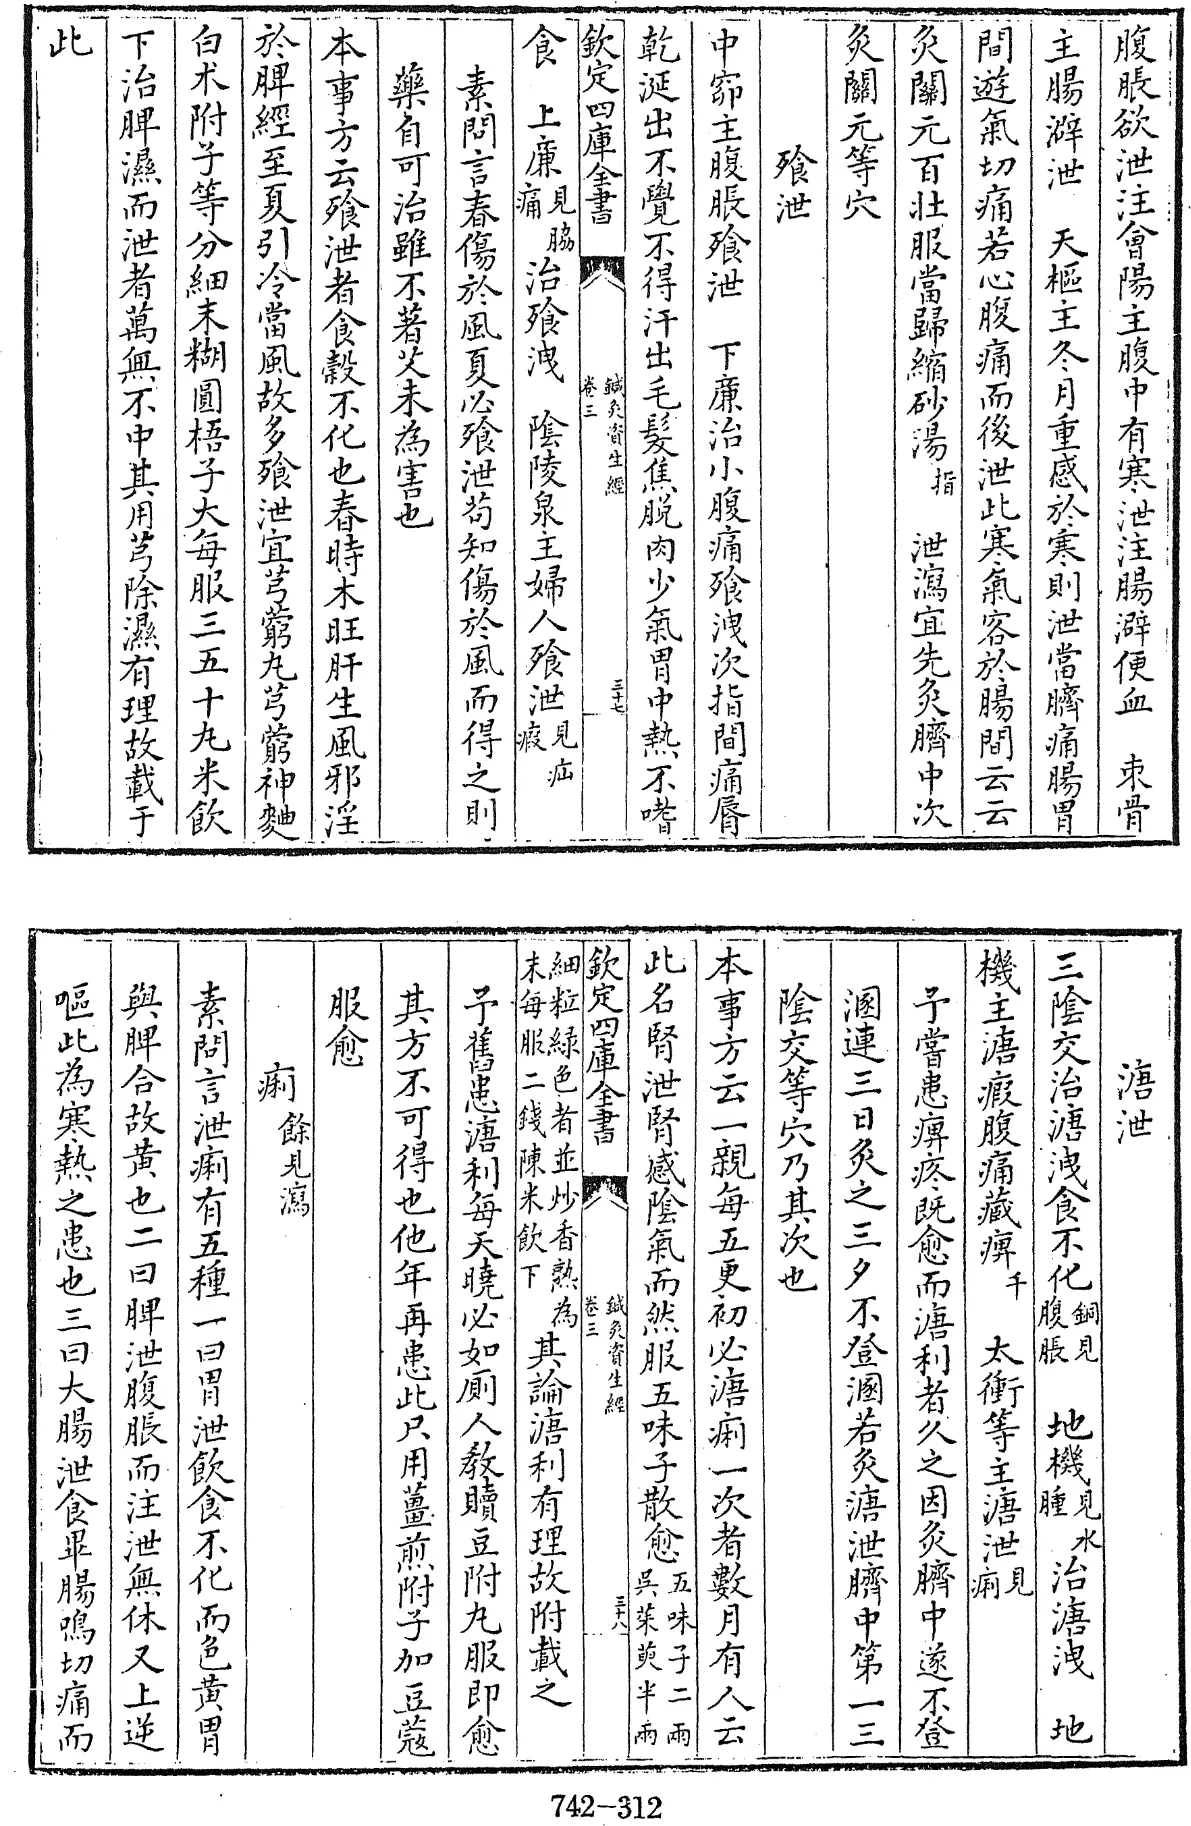 腹脹欲泄注會陽主腹中有寒泄注腸澼便血　束骨
主腸澼泄　天樞主冬月重感於寒則泄當臍痛腸胃
間遊氣切痛若心腹痛而後泄此寒氣客於腸間云云
灸關元百壯服當歸縮砂湯指　泄瀉宜先灸臍中次
灸關元等穴
飱泄
中窌主腹脹飱泄　下廉治小腹痛飱洩次指間痛脣
乾涎出不覺不得汗出毛髮焦脫肉少氣胃中熱不嗜
欽定四庫全書　鍼灸資生經　卷三　三十七
食　上廉見脇痛治飱洩　陰陵泉主婦人飱泄見疝瘕
素問言春傷於風夏必飱泄苟知傷於風而得之則
藥自可治雖不著艾未為害也
本事方云飱泄者食穀不化也春時木旺肝生風邪淫
於脾經至夏引冷當風故多飱泄宜芎藭丸芎藭神麯
白术附子等分細末糊圓梧子大每服三五十丸米飲
下治脾濕而泄者萬無不中其用芎除濕有理故載于
此
溏泄
三陰交治溏洩食不化銅見腹脹　地機見水腫治溏洩　地
機主溏瘕腹痛藏痹千　太衝等主溏泄見痢
予嘗患痹疼既愈而溏利者久之因灸臍中遂不登
溷連三日灸之三夕不登溷若灸溏泄臍中第一三
陰交等穴乃其次也
本事方云一親每五更初必溏痢一次者數月有人云
此名腎泄腎感陰氣而然服五味子散愈五味子二兩吳茱萸半兩
欽定四庫全書　鍼灸資生經　卷三　三十八
細粒緑色者並炒香熟為末每服二錢陳米飲下其論溏利有理故附載之
予舊患溏利每天曉必如厠人教贖豆附丸服即愈
其方不可得也他年再患此只用薑煎附子加豆蔻
服愈
痢餘見瀉
素問言泄痢有五種一曰胃泄飲食不化而色黄胃
與脾合故黄也二曰脾泄腹脹而注泄無休又上逆
嘔此為寒熱之患也三曰大腸泄食畢腸鳴切痛而
742-312